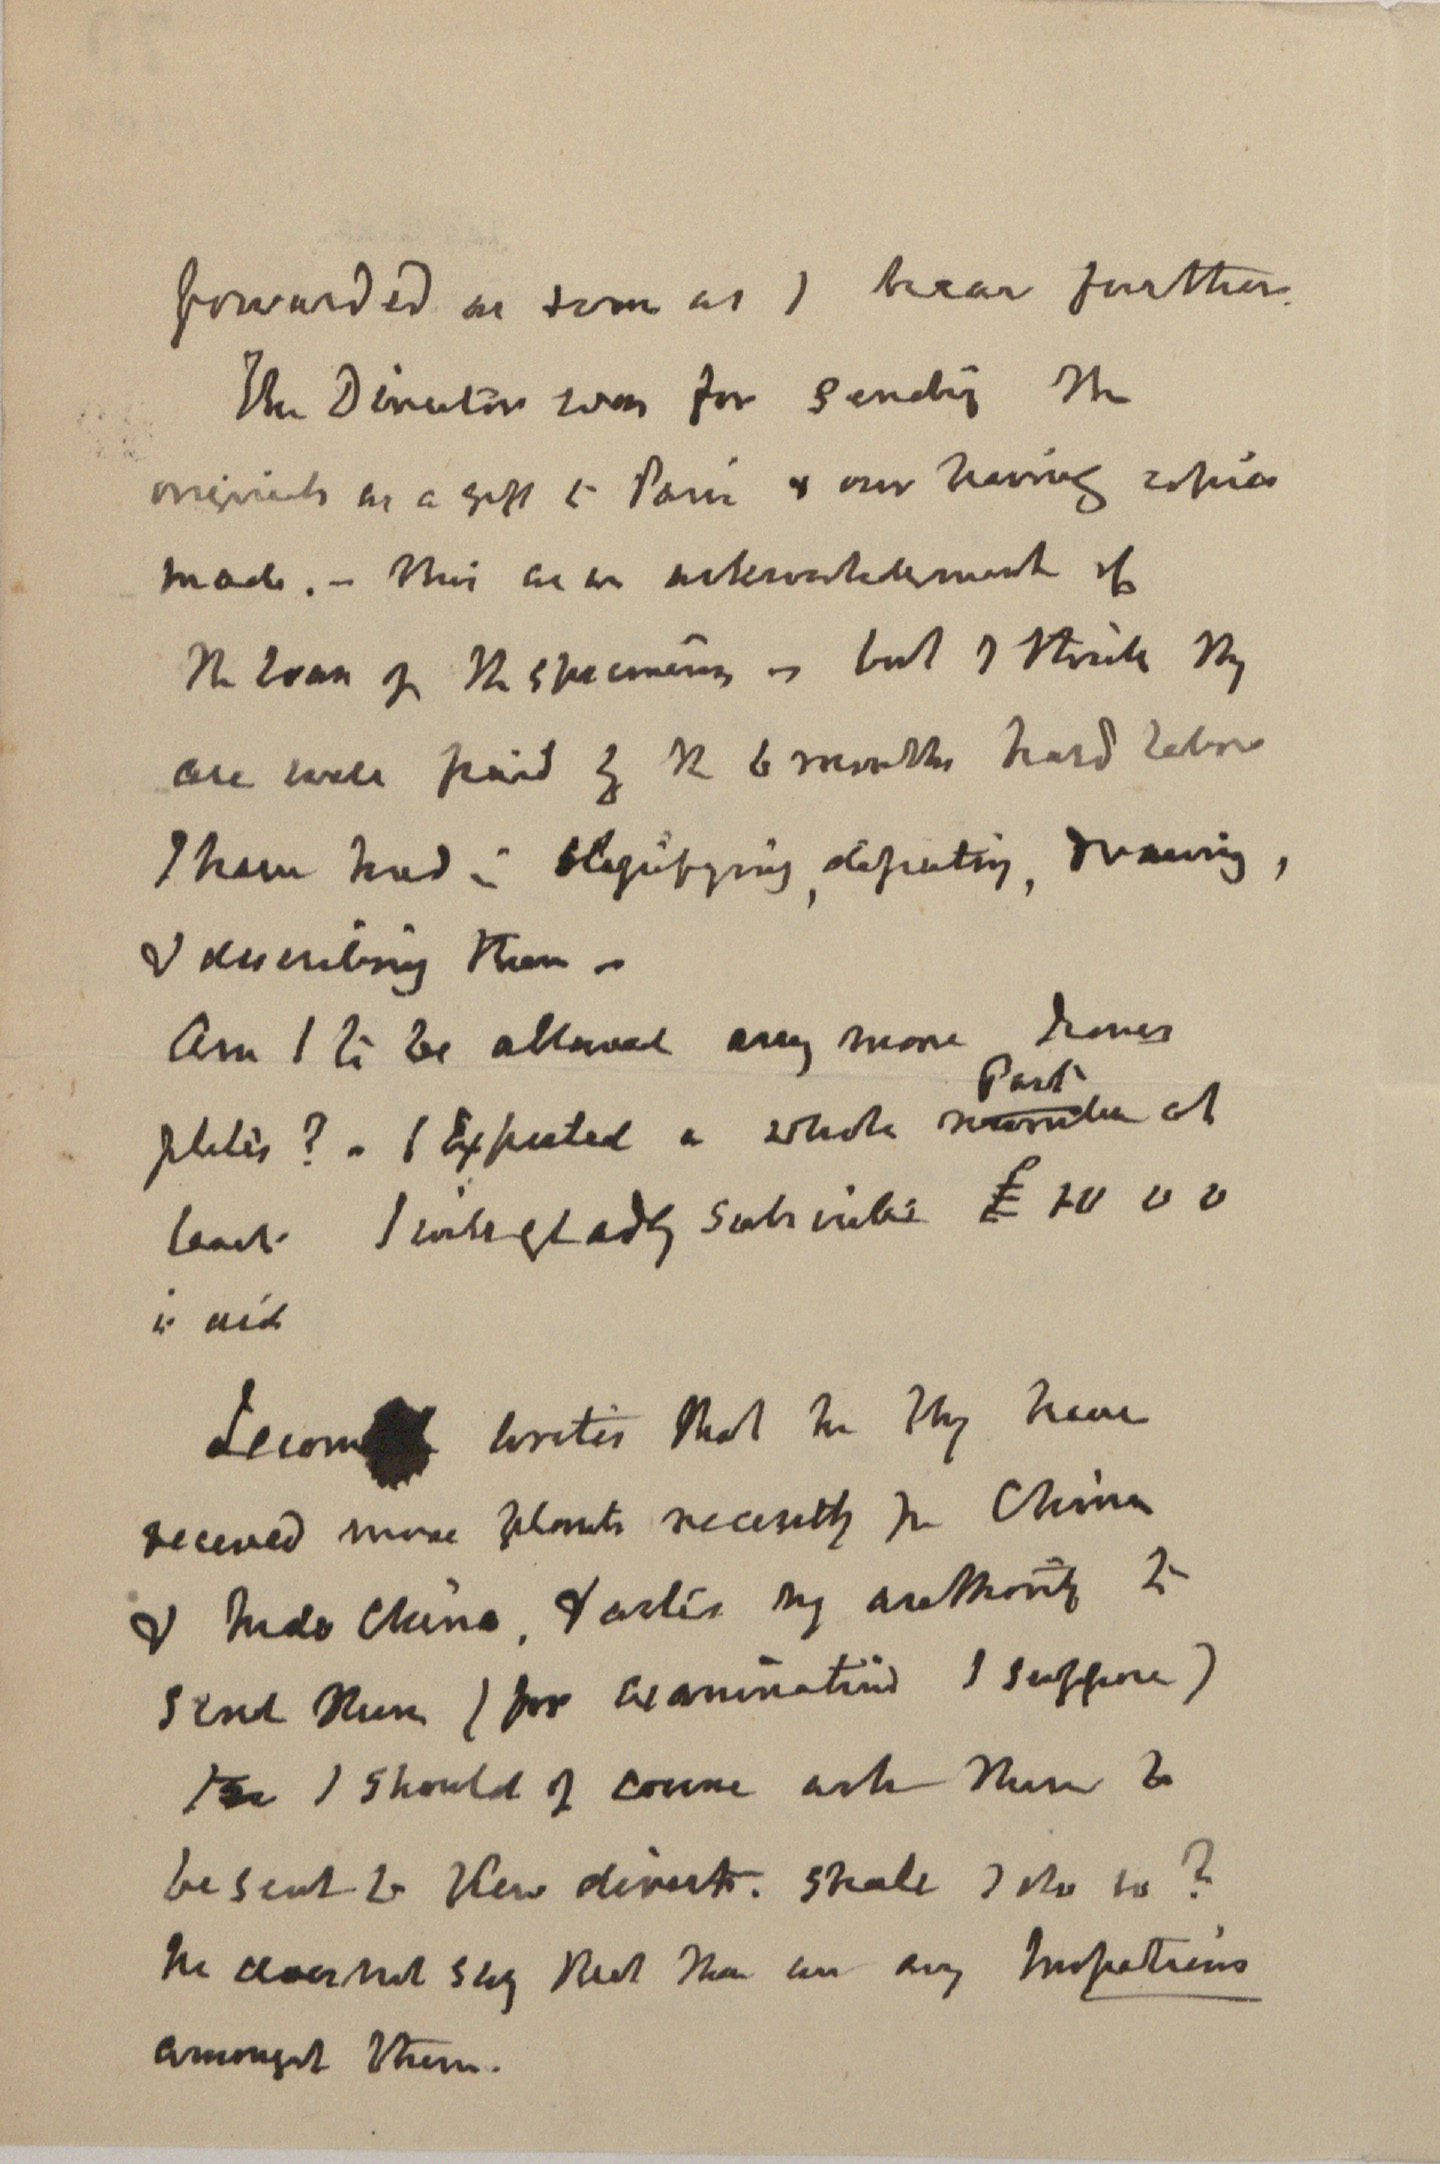 forwarded as soon as I hear further.
The Director was for sending the
originals as a gift to Paris & our having copies
made. – this as an acknowledgement of
the loan of the specimens – but I think they
are well paid by the 6 months hard labor
I have had in  , , drawing,
& describing them –
Am I to be allowed any more Icones
Part
plates? – I Expected a whole number at
least I will gladly subscribe £ 20 0 0
in aid
Lecomte writes that he they have
received more plants recently fm China
& Indo China, & asks my authority to
send them (for examination I suppose)
I should of course ask them to
be sent to Kew direct. Shall I do so?
he does not say that there are any Impatiens
amongst them.